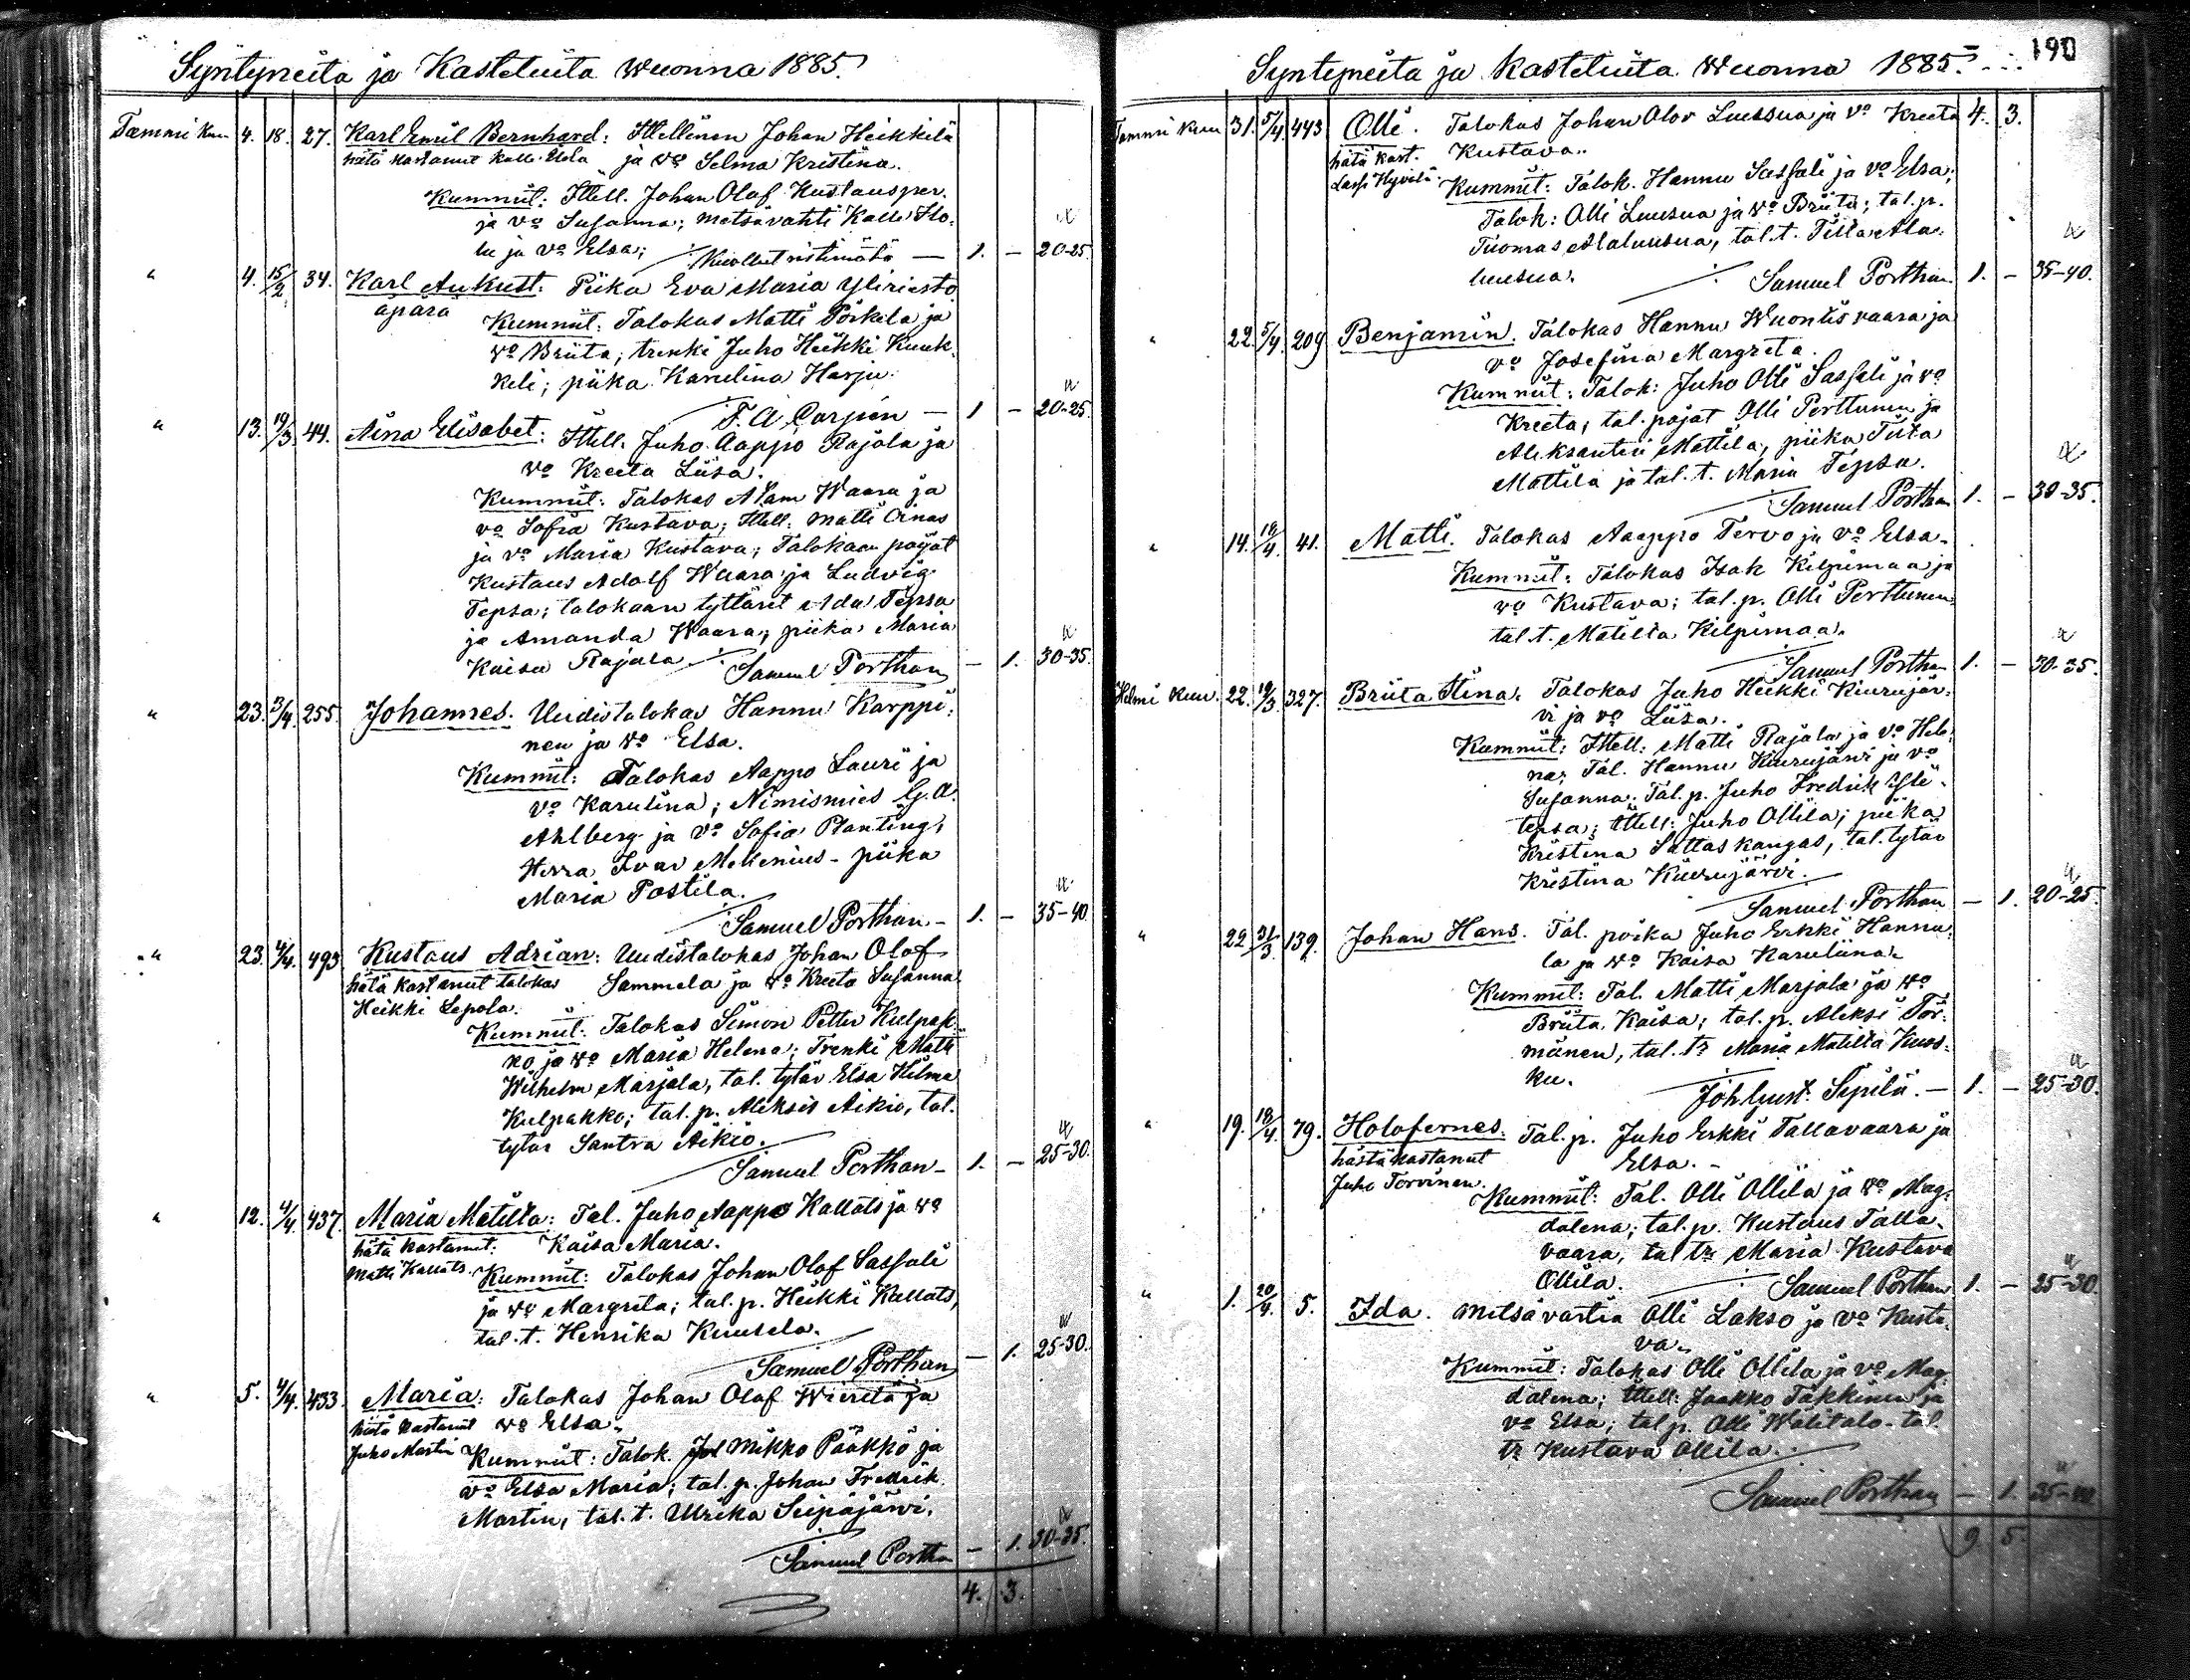 Syntyneitä ja Kastetuita wuonna 1885.
Tammi kuu 4. 18. 27. Karl Emil Bernhard: Itellinen Johan Heikkilä
hätä kastanut Kalle Elola ja vo Selma Kristina.
Kummit: Itell. Johan Olof Kustausper.
ja vo Susanna; metsävahti Kalle Ilo-
la ja vo Elsa; Kuollut ristimätä — 1. — 20-25.
" 4. 15/2 34. Karl Aukust: Piika Eva Maria Yliriesto
äpärä Kummit: Talokas Matti Pörkelä ja
vo Briita; trenki Juho Heikki Kuuk-
keli; piika Karulina Harju.
F. A. Carpén — 1 — 20-25.
" 13. 19/3 44. Aina Elisabet: Itell. Juho Aappo Rajala ja
vo Kreeta Liisa.
Kummit: Talokas Adam Waara ja
vo Sofia Kustava; Itell. Matti Oinas
ja vo Maria Kustava; Talokaan pojat
Kustaus Adolf Waara ja Ludvig
Tepsa; talokaan tyttäret Ada Tepsa
ja Amanda Waara; piika Maria
Kaisa Rajala Samuel Porthan — 1. 30-35.
" 23. 3/4. 255. Johannes. Uudistalokas Hannu Karppi-
nen ja vo Elsa.
Kummit: Talokas Aappo Lauri ja
vo Karulina; Nimismies G. A.
Ahlberg ja vo Sofia Planting;
Herra Ivar Mekenius - piika
Maria Postila.
Samuel Porthan — 1. — 35-40.
" 23. 4/4. 493 Kustaus Adrian: Uudistalokas Johan Olof
hätä kastanut talokas Sammela ja vo Kreeta Susanna.
Heikki Lepola.
Kummit: Talokas Simon Petter Kulpak-
ko ja vo Maria Helena; Trenki Matti
Wilhelm Marjala, tal. tytär Elsa Hilma
Kulpakko; tal. p. Aleksis Aikio, tal.
tytär Santra Aikio.
Samuel Porthan — 1. — 25-30.
" 12. 4/4 437. Maria Matilta: Tal. Juho Aappo Kallats ja vo
hätä kastanut: Kaisa Maria.
Matti Kallats. Kummit: Talokas Johan Olof Sassali
ja vo Margreta; tal. p. Heikki Kallats,
tal. t. Henrika Kuusela.
Samuel Porthan — 1. 25-30.
" 5. 4/4. 433. Maria: Talokas Johan Olof Wiiritä ja
hätä kastanut vo Elsa.
Juho Martin Kummit: Talok. Mikko Pääkkö ja
vo Elsa Maria; tal. p. Johan Fredrik
Martin, tal. t. Ulrika Seipäjärvi.
Samuel Portha — 1. 30-35.
4. 3.
Syntyneitä ja Kastetuita wuonna 1885. 190
Tammi kuu 31. 5/4 443 Olli. Talokas Johan Olov Luusua ja vo Kreeta 4. 3.
hätä kast. Kustava.
Lassi Hyvelä. Kummit: Talok. Hannu Sassali ja vo Elsa;
Talok: Olli Luusua ja vo Briita; tal. p.
Tuomas Alaluusua, tal. t. Tilta Ala-
luusua.
Samuel Porthan 1. — 35-40.
" 22. 5/4. 209 Benjamin. Talokas Hannu Wuontisvaara ja
vo Josefina Margreta.
Kummit: Talok: Juho Olli Sassali ja vo
Kreeta; tal. pojat Olli Perttunen ja
Aleksanteri Mattila; piika Tilta
Mattila ja tal. t. Maria Tepsa.
Samuel Porthan 1. — 30-35.
" 14. 18/4. 41. Matti. Talokas Aappo Tervo ja vo Elsa.
Kummit: Talokas Isak Kilpimaa ja
vo Kustava; tal. p. Olli Perttunen
tal. t. Matilta Kilpimaa.
Samuel Porthan 1. — 30-35.
Helmi kuu. 22. 19/3. 327. Briita Stina. Talokas Juho Heikki Kiurujär-
vi ja vo Liisa.
Kummit: Itell: Matti Rajala ja vo Hele-
na; Tal. Hannu Kiurujärvi ja vo
Susanna. Tal. p. Juho Fredrik Yli-
tepsa; Itell: Juho Ollila; piika
Kristina Sattaskangas, tal. tytär
Kristina Kiurujärvi.
Samuel Porthan — 1. 20-25.
" 22 31/3. 139. Johan Hans. Tal. poika Juho Erkki Hannu-
la ja vo Kaisa Karuliina.
Kummit: Tal. Matti Marjala ja vo
Briita Kaisa; tal. p. Aleksi Tör-
mänen, tal. tr Maria Matilta Kuos-
ku.
Joh. Gust. Sipilä. — 1. — 25-30.
" 19. 18/4. 79. Holofernes. Tal. p. Juho Erkki Tallavaara ja
hästä kastanut Elsa.
Juho Torvinen.
Kummit: Tal. Olli Ollila ja vo Mag-
dalena; tal. p. Kustaus Talla-
vaara, tal tr Maria Kustava
Ollila.
Samuel Porthan 1. — 25-30.
" 1. 20/4. 5. Ida. Metsävartia Olli Lakso ja vo Kusta-
va.
Kummit: Talokas Olli Ollila ja vo Mag-
dalena; Itell: Jaakko Täkkinen ja
vo Elsa; tal p. Olli Wälitalo - tal.
tr Kustava Ollila.
Samuel Porthan — 1. 35-40
9. 5.